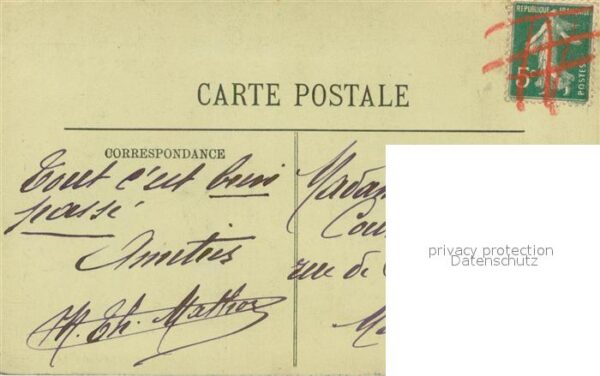 REPUBLIQUE FRANÇAISE
5c
POSTES
CARTE POSTALE
CORRESPONDANCE
Tout c'est bien
passé
Amitiés
Madam
Cou
rue de
privacy protection
Datenschutz